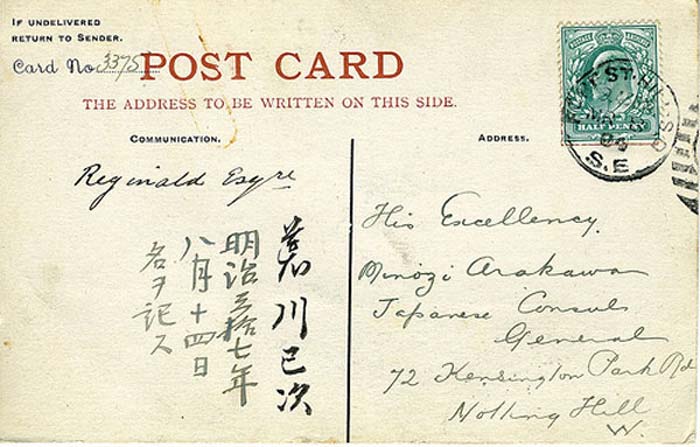 IF UNDELIVERED
RETURN TO SENDER.
Card No. 3375
POST CARD
THE ADDRESS TO BE WRITTEN ON THIS SIDE.
COMMUNICATION.
Reginald Esqre
荒川已次
明治三拾七年
八月十四日
名ヲ記ス
ADDRESS.
His Excellency
Minozi Arakawa
Japanese Consul
General
72 Kensington Park Rd
Notting Hill
W.
POSTAGE
HALF PENNY
ST. HILL. SO
S.E